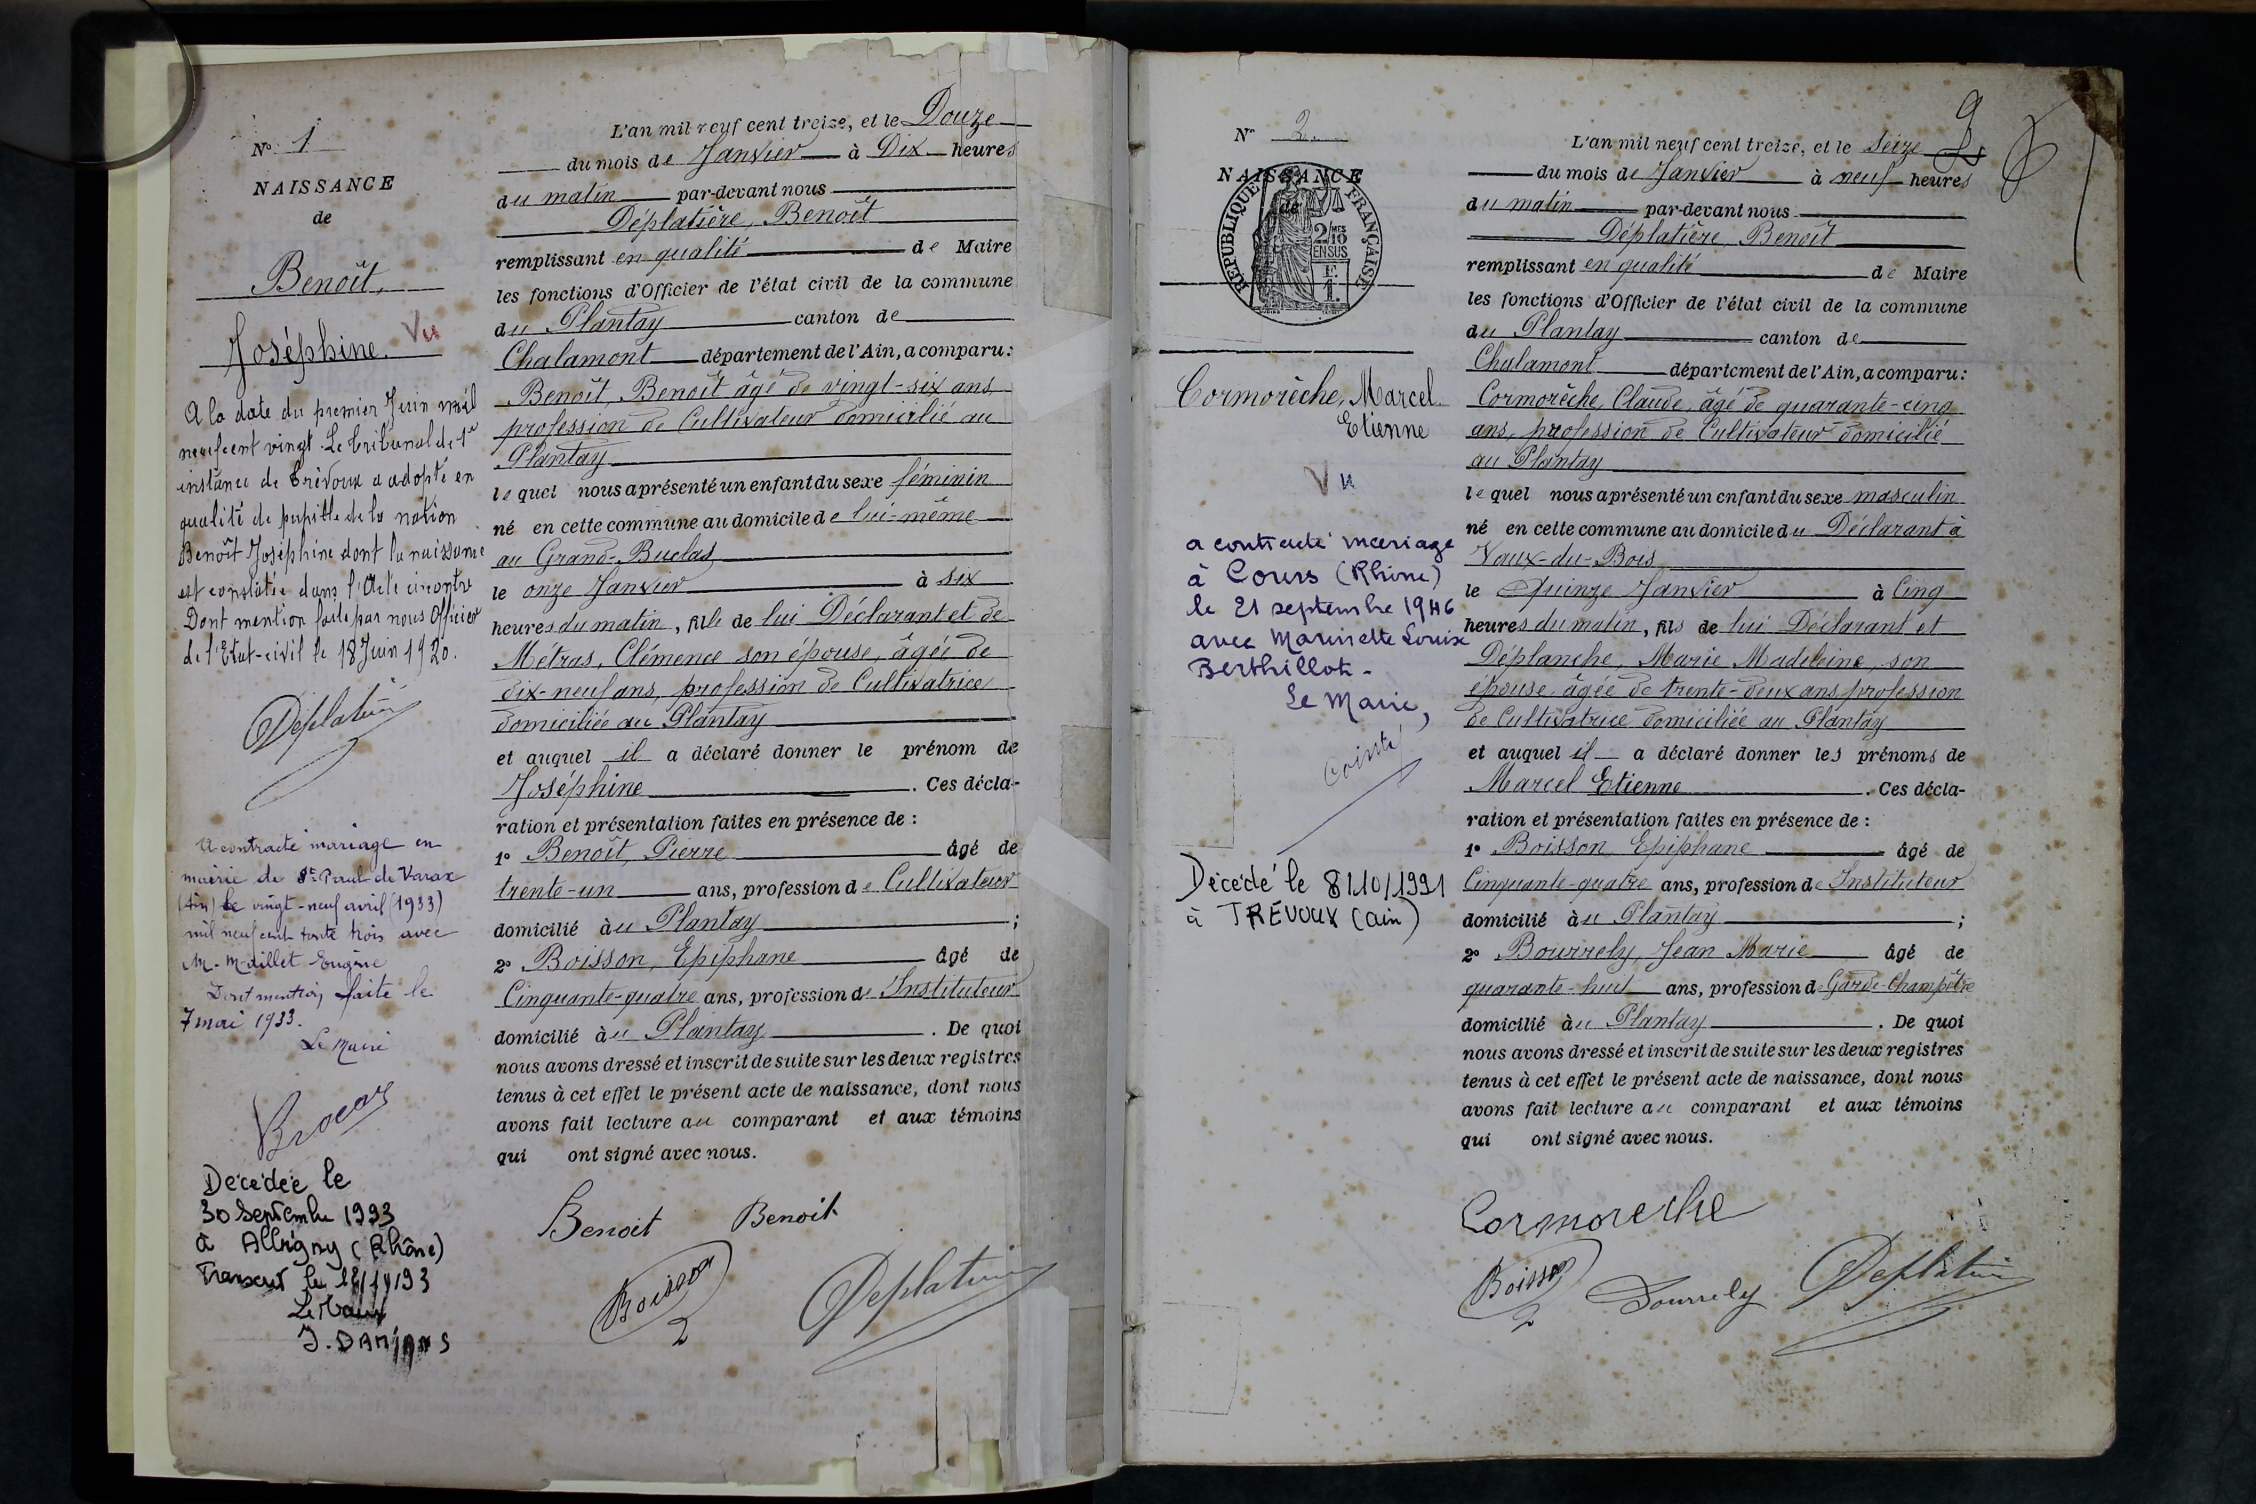 N° 1
NAISSANCE
de
Benoît,
Joséphine. Vu
A la date du premier Juin mil
neuf cent vingt. Le tribunal de 1re
instance de Trévoux a adopté en
qualité de pupille de la nation
Benoît Joséphine dont la naissance
est constatée dans l'Acte ci-contre
Dont mention faite par nous Officier
de l'Etat-civil le 18 Juin 1920.
Déplatière
A contracté mariage en
mairie de St Paul de Varax
(Ain) le vingt-neuf avril (1933)
mil neuf cent trente trois avec
M. Maillet Eugène
Dont mention faite le
7 mai 1933.
Le Maire
Décédée le
30 Septembre 1993
à (Rhône)
Transcrit le
Le Maire
L'an mil neuf cent treize, et le Douze
du mois de Janvier à Dix heures
du matin par-devant nous
Déplatière, Benoît
remplissant en qualité de Maire
les fonctions d'Officier de l'état civil de la commune
du Plantay canton de
Chalamont département de l'Ain, a comparu:
Benoît, Benoît âgé de vingt-six ans,
profession de Cultivateur domicilié au
Plantay
lequel nous a présenté un enfant du sexe féminin
né en cette commune au domicile de lui-même
au Grand-Buclas
le onze Janvier à six
heures du matin, fille de lui Déclarant et de
Métras, Clémence son épouse, âgée de
dix-neuf ans, profession de Cultivatrice
domiciliée au Plantay
et auquel il a déclaré donner le prénom de
Joséphine. Ces décla-
ration et présentation faites en présence de :
1° Benoît, Pierre âgé de
trente-un ans, profession de Cultivateur
domicilié au Plantay ;
2° Boisson, Epiphane âgé de
Cinquante-quatre ans, profession de Instituteur
domicilié au Plantay. De quoi
nous avons dressé et inscrit de suite sur les deux registres
tenus à cet effet le présent acte de naissance, dont nous
avons fait lecture au comparant et aux témoins
qui ont signé avec nous.
Benoit Benoit
Boisson Déplatière
N° 2.
NAISSANCE
de
REPUBLIQUE FRANÇAISE
2/10 MES
EN SUS
F.
1.
Cormorèche, Marcel
Etienne
Vu
a contracté mariage
à Cours (Rhône)
le 21 septembre 1946
avec Marinette Louise
Berthillot -
Le Maire,
Décédé le 8/10/1991
à TREVOUX (Ain)
9
L'an mil neuf cent treize, et le Seize
du mois de Janvier à neuf heures
du matin par-devant nous
Déplatière, Benoît
remplissant en qualité de Maire
les fonctions d'Officier de l'état civil de la commune
du Plantay canton de
Chalamont département de l'Ain, a comparu:
Cormorèche, Claude, âgé de quarante-cinq
ans, profession de Cultivateur domicilié
au Plantay
lequel nous a présenté un enfant du sexe masculin
né en cette commune au domicile du Déclarant à
Vaux-du-Bois
le Quinze Janvier à Cinq
heures du matin, fils de lui Déclarant et
Déplanche, Marie Madeleine, son
épouse âgée de trente-deux ans, profession
de Cultivatrice domiciliée au Plantay
et auquel il a déclaré donner les prénoms de
Marcel Etienne. Ces décla-
ration et présentation faites en présence de :
1° Boisson, Epiphane âgé de
Cinquante-quatre ans, profession de Instituteur
domicilié au Plantay ;
2° Bourrely, Jean Marie âgé de
quarante-huit ans, profession de Garde-Champêtre
domicilié au Plantay. De quoi
nous avons dressé et inscrit de suite sur les deux registres
tenus à cet effet le présent acte de naissance, dont nous
avons fait lecture au comparant et aux témoins
qui ont signé avec nous.
Cormoreche
Boisson Bourrely Déplatière